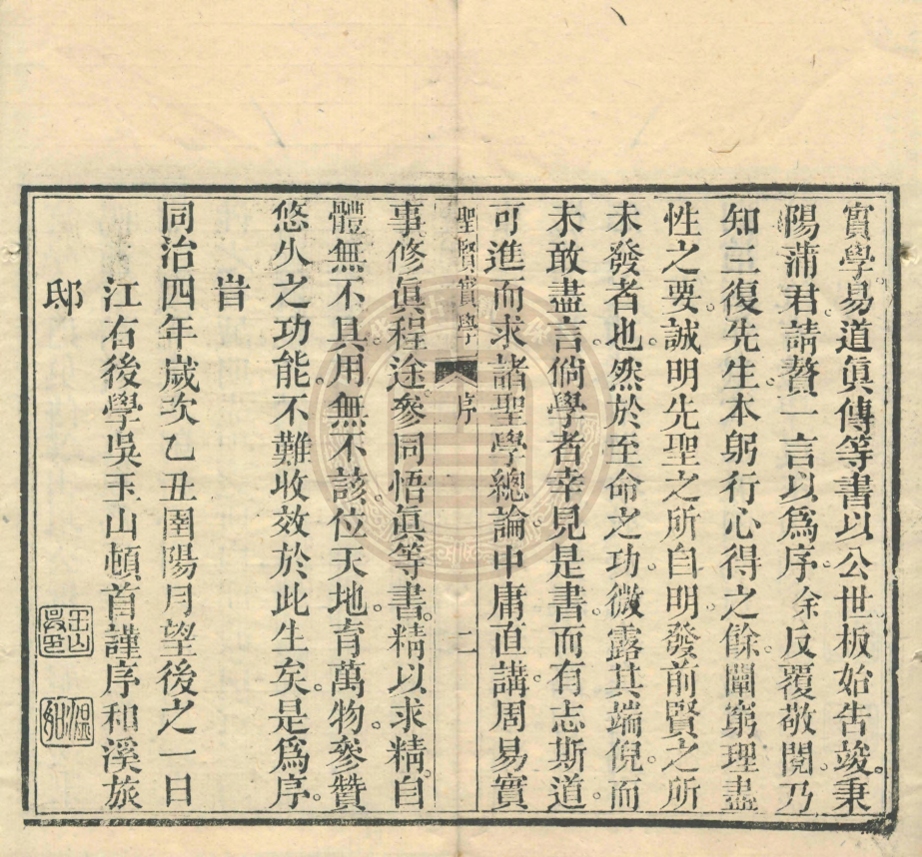 實學易道眞傳等書以公世板始告竣秉
陽蒲君請贅一言以爲序余反覆敬閱乃
知三復先生本躬行心得之餘闡窮理盡
性之要誠明先聖之所自明發前賢之所
未發者也然於至命之功微露其端倪而
未敢盡言倘學者幸見是書而有志斯道
可進而求諸聖學總論中庸直講周易實
聖賢實學 序 二
事修眞程途參同悟眞等書精以求精自
體無不具用無不該位天地育萬物參贊
悠久之功能不難收效於此生矣是爲序
旹
同治四年歲次乙丑圉陽月望後之一日
江右後學吳玉山頓首謹序和溪旅
邸
玉山